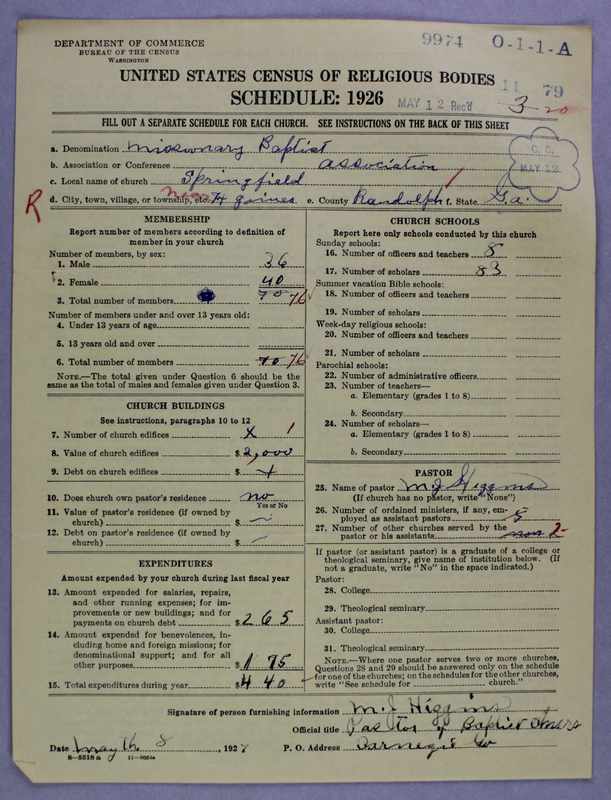 DEPARTMENT OF COMMERCE
BUREAU OF THE CENSUS
WASHINGTON
9974 O-1-1-A
UNITED STATES CENSUS OF RELIGIOUS BODIES
11 79
SCHEDULE: 1926
MAY 12 Rec'd
3-20
FILL OUT A SEPARATE SCHEDULE FOR EACH CHURCH. SEE INSTRUCTIONS ON THE BACK OF THIS SHEET
a. Denomination Missionary Baptist
b. Association or Conference association
C. C.
MAY 13
c. Local name of church Springfield
R
d. City, town, village, or township, etc. Ft gaines e. County Randolph f. State Ga.
MEMBERSHIP
Report number of members according to definition of member in your church
Number of members, by sex:
1. Male 36
2. Female 40
3. Total number of members 70 76
Number of members under and over 13 years old:
4. Under 13 years of age
5. 13 years old and over
6. Total number of members 70 76
NOTE.—The total given under Question 6 should be the
same as the total of males and females given under Question 3.
CHURCH BUILDINGS
See instructions, paragraphs 10 to 12
7. Number of church edifices X 1
8. Value of church edifices $2,000
9. Debt on church edifices $ X
10. Does church own pastor's residence no
Yes or No
11. Value of pastor's residence (if owned by
church) $ —
12. Debt on pastor's residence (if owned by
church) $ —
EXPENDITURES
Amount expended by your church during last fiscal year
13. Amount expended for salaries, repairs,
and other running expenses; for im-
provements or new buildings; and for
payments on church debt $265
14. Amount expended for benevolences, in-
cluding home and foreign missions; for
denominational support; and for all
other purposes $175
15. Total expenditures during year $440
CHURCH SCHOOLS
Report here only schools conducted by this church
Sunday schools:
16. Number of officers and teachers 8
17. Number of scholars 83
Summer vacation Bible schools:
18. Number of officers and teachers
19. Number of scholars
Week-day religious schools:
20. Number of officers and teachers
21. Number of scholars
Parochial schools:
22. Number of administrative officers
23. Number of teachers—
a. Elementary (grades 1 to 8)
b. Secondary
24. Number of scholars—
a. Elementary (grades 1 to 8)
b. Secondary
PASTOR
25. Name of pastor M J Higgins
(If church has no pastor, write "None")
26. Number of ordained ministers, if any, em-
ployed as assistant pastors
27. Number of other churches served by the
pastor or his assistants 2
If pastor (or assistant pastor) is a graduate of a college or
theological seminary, give name of institution below. (If
not a graduate, write "No" in the space indicated.)
Pastor:
28. College
29. Theological seminary
Assistant pastor:
30. College
31. Theological seminary
NOTE.—Where one pastor serves two or more churches,
Questions 28 and 29 should be answered only on the schedule
for one of the churches; on the schedules for the other churches,
write "See schedule for church."
Signature of person furnishing information M. J Higgins
Official title Pastor of Baptist
Date May th 8, 1927 P. O. Address Carnegie Ga
8—5518 a 11—9054a